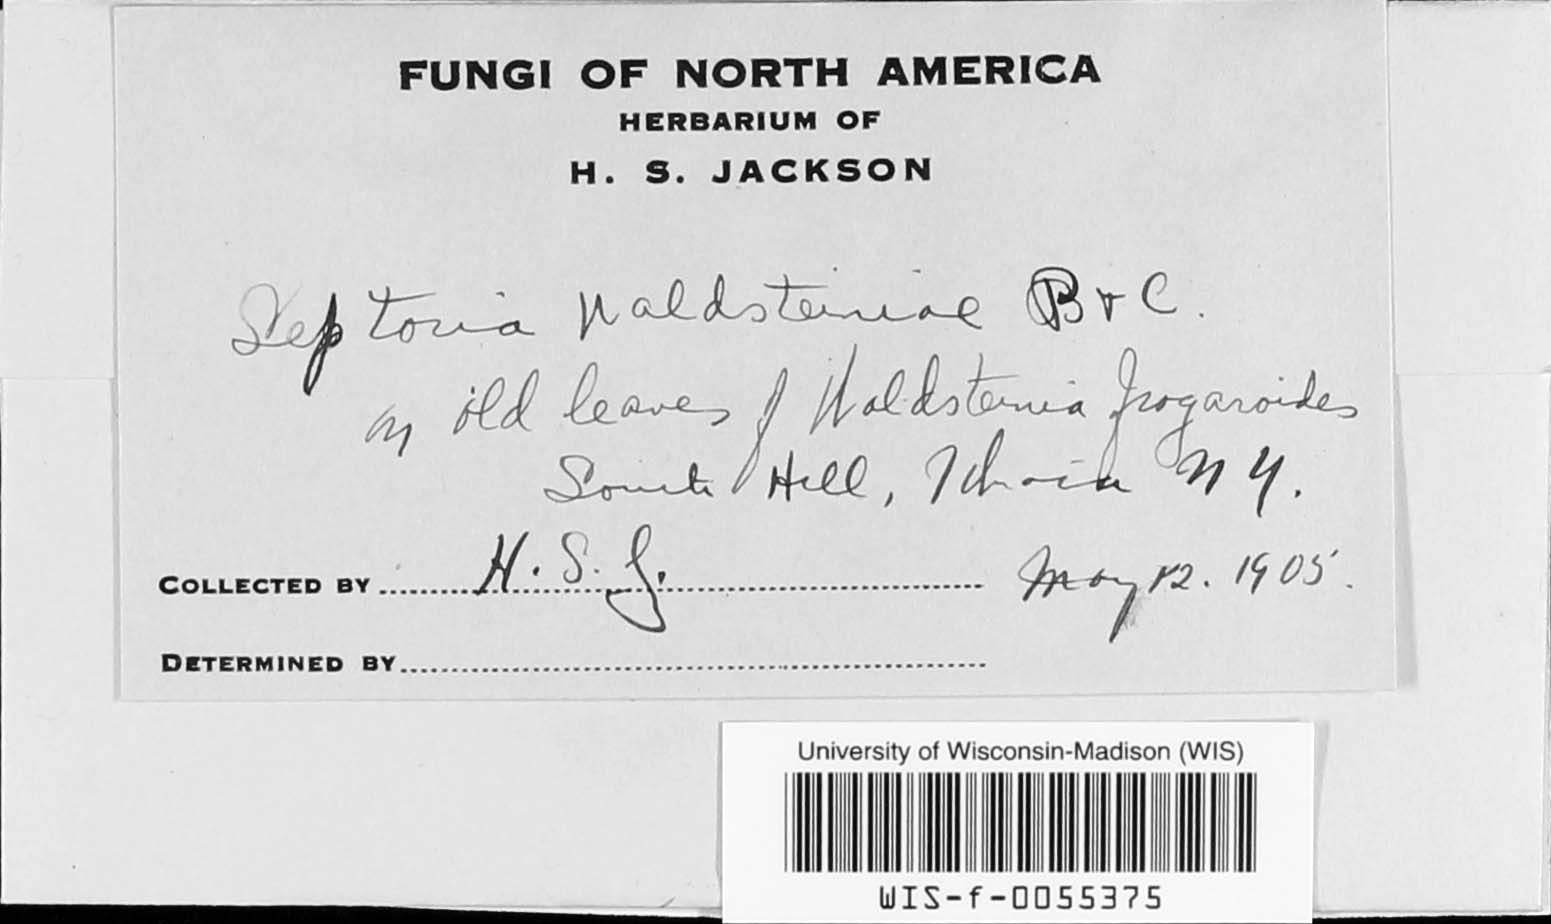 FUNGI OF NORTH AMERICA
HERBARIUM OF
H. S. JACKSON
Septoria Waldsteiniae B & C.
on old leaves of Waldsteinia fragarioides
South Hill, Ithaca N Y.
COLLECTED BY H. S. J. May 12. 1905.
DETERMINED BY
University of Wisconsin-Madison (WIS)
WIS-f-0055375